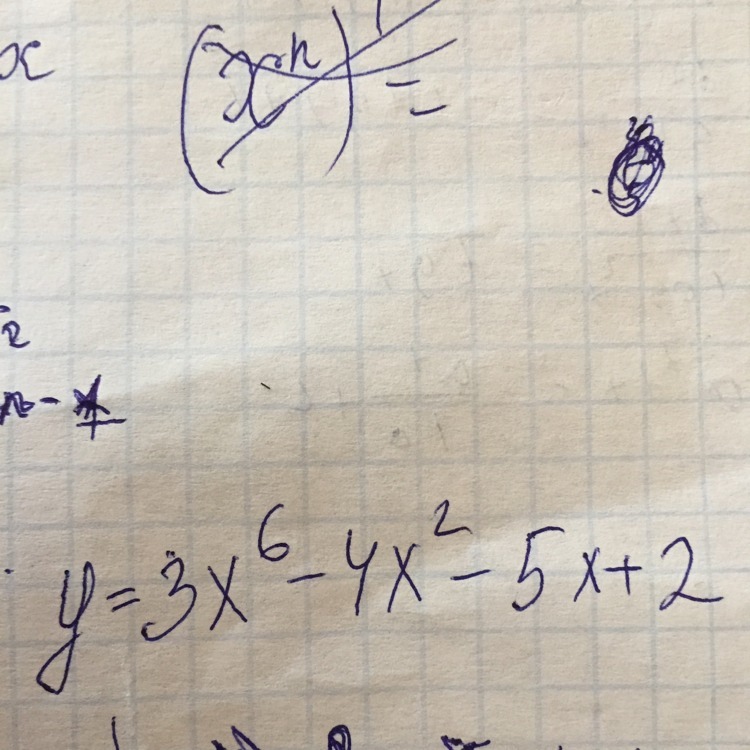 x (xⁿ)' =
2
n-1
y=3x⁶-4x²-5x+2